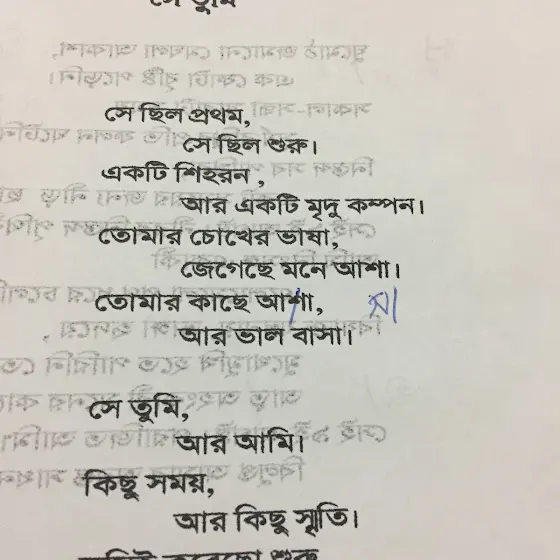 সে তুমি
সে ছিল প্রথম,
সে ছিল শুরু।
একটি শিহরন,
আর একটি মৃদু কম্পন।
তোমার চোখের ভাষা,
জেগেছে মনে আশা।
তোমার কাছে আশা,
আর ভাল বাসা।
সে তুমি,
আর আমি।
কিছু সময়,
আর কিছু স্মৃতি।